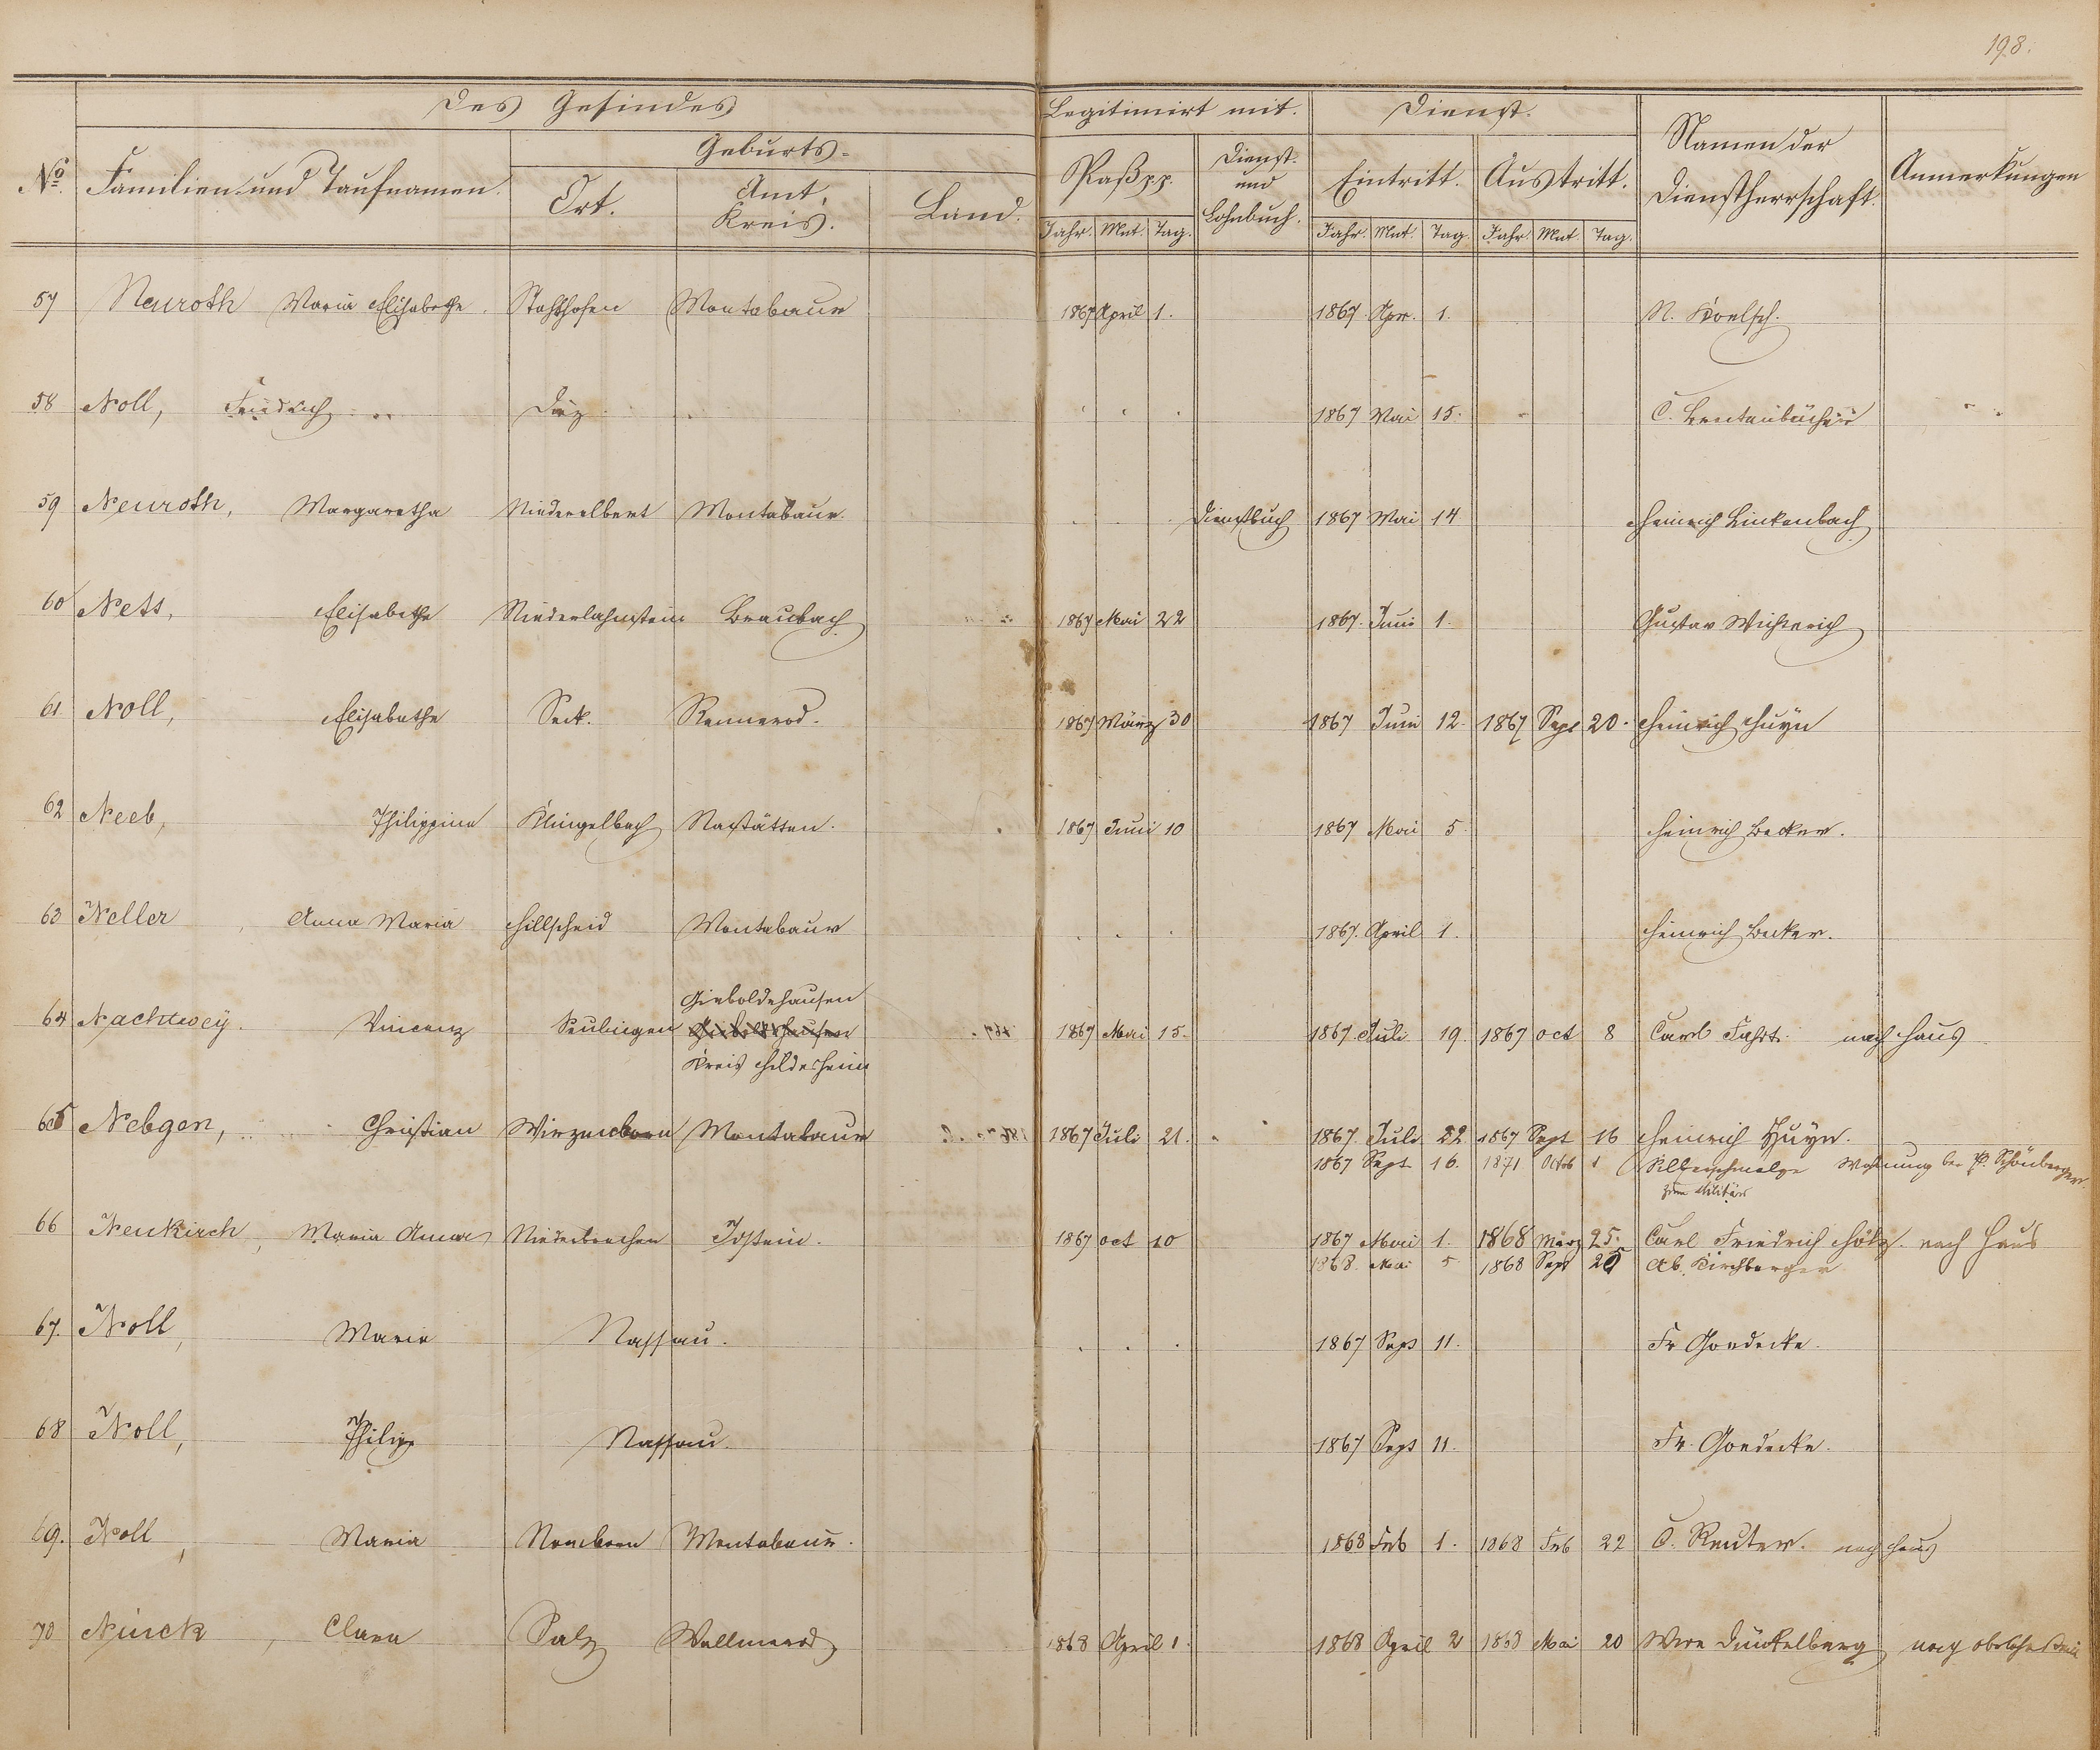 198.
Des Gesindes Legitimirt mit. Dienst.
No. Familien und Taufnamen. Geburts- Paß p.p. Dienst- und Lohnbuch. Eintritt. Austritt. Namen der Dienstherrschaft. Anmerkungen
Ort. Amt, Kreis. Land. Jahr. Mnt. Tag. Jahr. Mnt. Tag. Jahr. Mnt. Tag.
57 Neuroth Maria Elisabethe. Stahlhofen Montabaur 1867 April 1. 1867 Apr. 1. N. Koelsch.
58 Noll, Friedrich Diez 1867 Mai 15. C.
59 Neuroth, Margaretha Niederelbert Montabaur. Dienstbuch 1867 Mai 14 Heinrich Linkenbach
60 Nett, Elisabethe Niederlahnstein Braubach 1867 Mai 22 1867. Juni 1. Gustav Wichterich
61 Noll, Elisabethe Seck. Rennerod. 1867 März 30 1867 Juni 12. 1867 Sept 20. Heinrich Huyn
62 Neeb, Philippine Klingelbach Nastätten. 1867 Juni 10 1867 Mai 5. Heinrich Becker.
63 Neller, Anna Maria Hillscheid Montabaur 1867. April 1. Heinrich Becker.
Gieboldehausen
64 Nachtwey. Vincenz Seulingen Gieboldehausen 1867 Mai 15. 1867. Juli 19. 1867 oct 8 Carl Fahrt. nach Haus
Kreis Hildesheim
65 Nebgen, Christian Wirzenborn Montabaur 1867 Juli 21. 1867. Juli 22 1867 Sept 16 Heinrich Huyn.
1867 Sept 16. 1871 Octob 1 Silberschmelze Wohnung bei P. Schönberger.
zum Militär
66 Neukirch, Maria Anna Niederbrechen Idstein. 1867 oct 10 1867 Mai 1. 1868 März 25. Carl Friedrich nach Haus
1868. Mai 5 1868 Sept 25 Ab. Kirchberger
67. Noll, Maria Nassau. 1867 Sept 11. Fr Goedecke.
68 Noll, Philipp Nassau. 1867 Sept 11. Fr. Goedecke.
69. Noll, Maria Nomborn Montabaur. 1868 Feb 1. 1868 Feb 22 C. Reuter. nach Haus
70 Ninck, Clara Salz Wallmerod 1868 April 1. 1868 April 2 1868 Mai 20 Wwe Dünkelberg nach Oberlahnstein